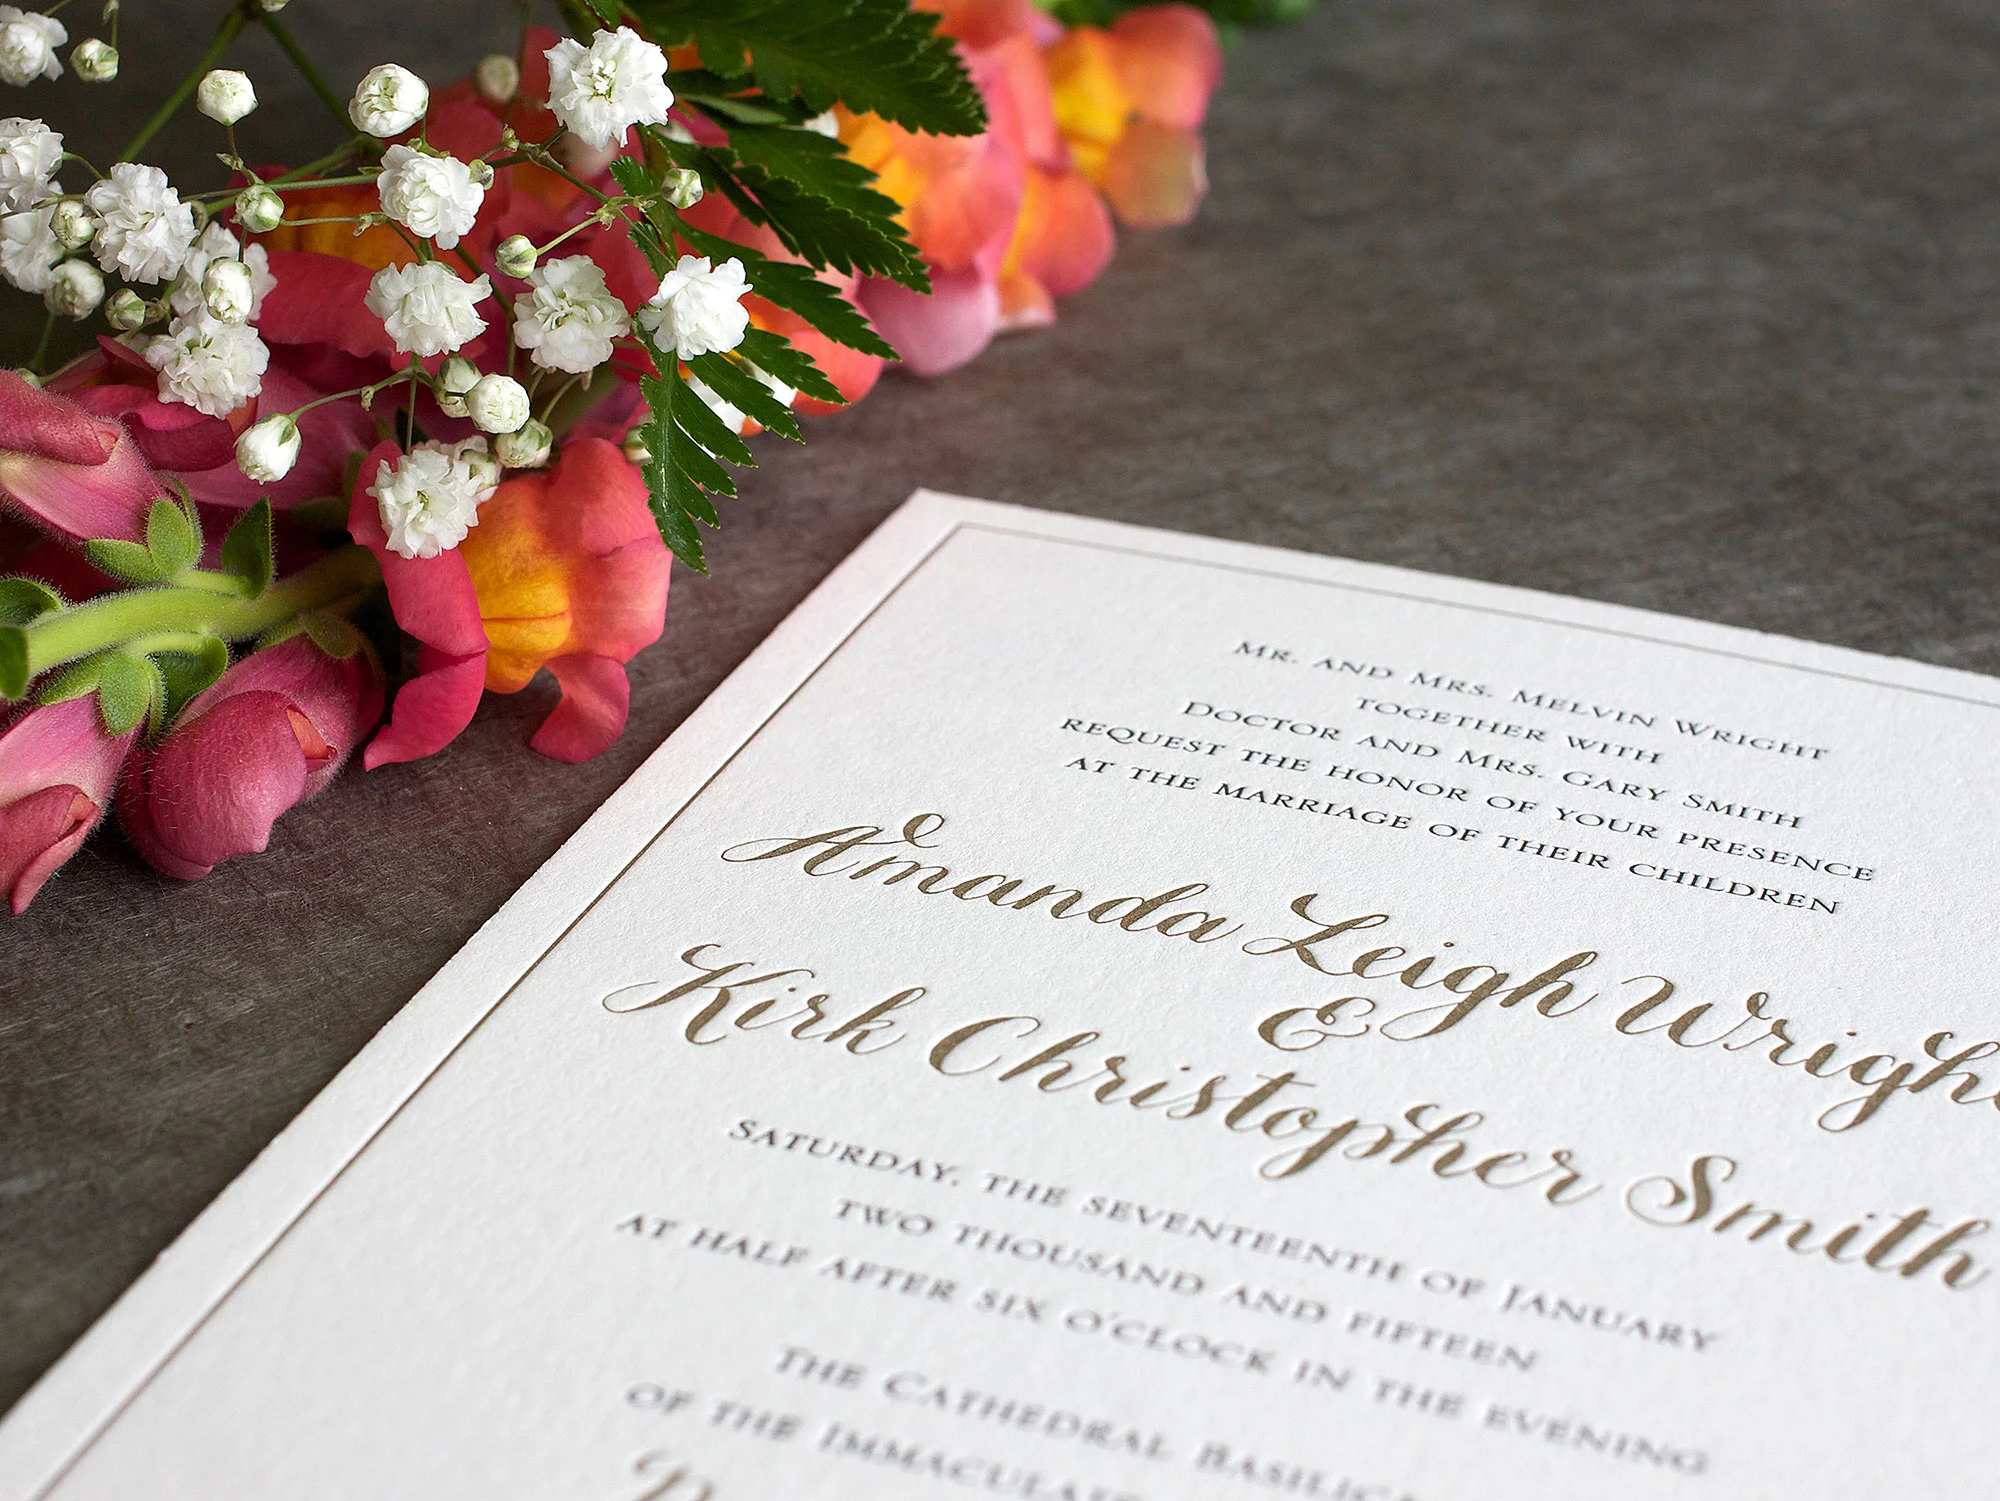 Mr. and Mrs. Melvin Wright
together with
Doctor and Mrs. Gary Smith
request the honor of your presence
at the marriage of their children
Amanda Leigh Wright
&
Kirk Christopher Smith
Saturday, the seventeenth of January
two thousand and fifteen
at half after six o'clock in the evening
The Cathedral Basilica
of the Immaculate